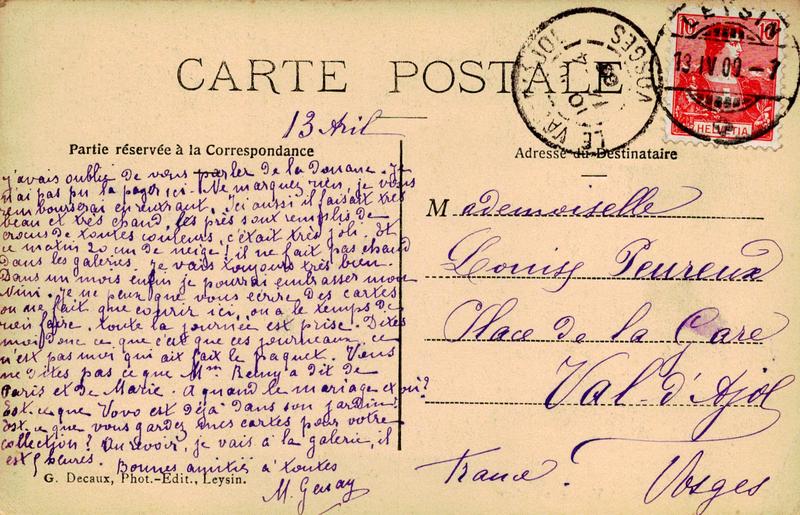 CARTE POSTALE
LEYSIN
13 IV 09 - 7
10
10
HELVETIA
LE VAL D'AJOL
VOSGES
13 Avril
Partie réservée à la Correspondance
Adresse du Destinataire
j'avais oublié de vous parler de la Douane. Je
n'ai pas pu la payer ici. Ne marquez rien, je vous
rembourserai en rentrant. Ici aussi il faisait très
beau et très chaud, les près sont remplis de
crocus de toutes couleurs, c'était très joli. Et
ce matin 20 cm de neige, il ne fait pas chaud
dans les galeries. Je vais toujours très bien.
Dans un mois enfin je pourrai embrasser mon
Nini. Je ne peux que vous écrire des cartes
on ne fait que courir ici, on a le temps de
rien faire, toute la journée est prise. Dites
moi donc ce que c'est que ces journeaux, ce
n'est pas moi qui ait fait le paquet. Vous
ne dites pas ce que Mme Remy a dit de
Paris et de Marie. A quand le mariage et où?
Est-ce que Vovo est déjà dans son jardin?
Est-ce que vous gardez mes cartes pour votre
collection? Au revoir, je vais à la galerie, il
est 5 heures. Bonnes amitiés à toutes
M.
G. Decaux, Phot.-Edit., Leysin.
Mademoiselle
Louise Peureux
Place de la Gare
Val-d'Ajol
France. Vosges